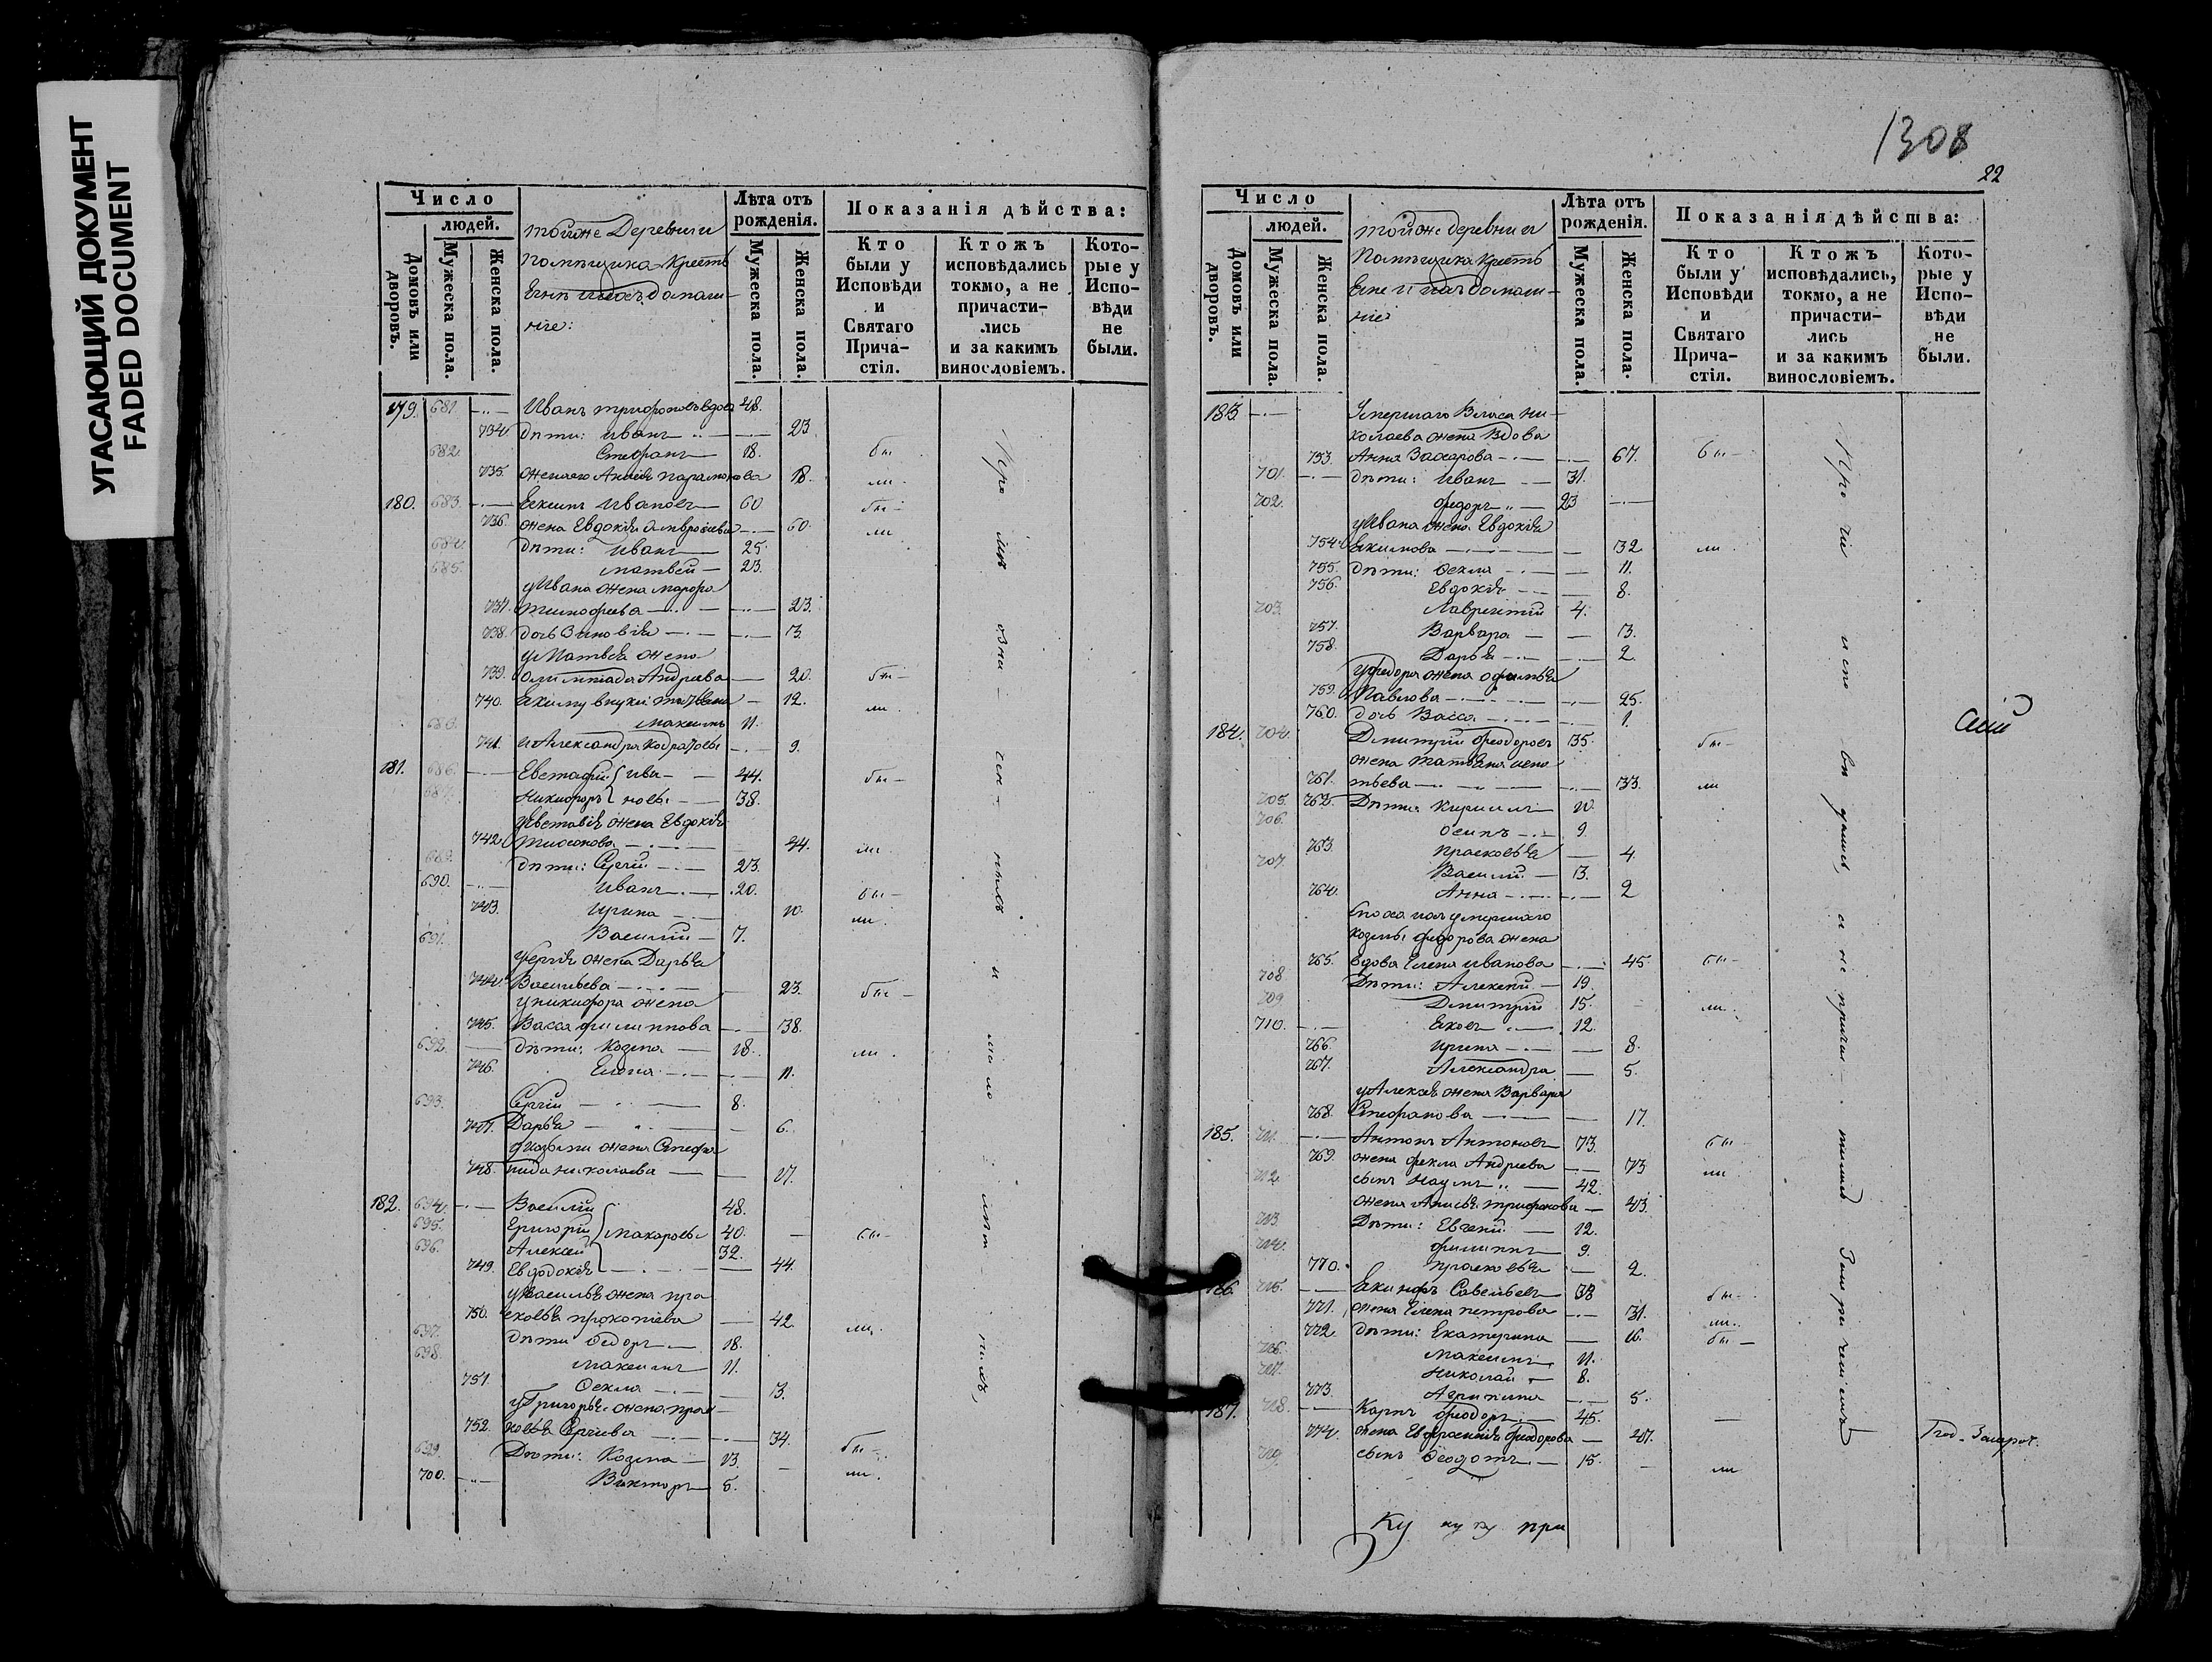 УГАСАЮЩИЙ ДОКУМЕНТ
FADED DOCUMENT
Число
людей.
Домовъ или дворовъ.
Мужеска пола.
Женска пола.
тойже Деревни и
помѣщика Крестья
не
ніе:
Лѣта отъ рожденія.
Мужеска пола.
Женска пола.
Показанія дѣйства:
Кто были у Исповѣди и Святаго Причастія.
Ктожъ исповѣдались токмо, а не причастились и за какимъ винословіемъ.
Которые у Исповѣди не были.
179. 681. Иванъ Трифоновъ вдовъ 48.
734. дѣти: Иванъ 23.
682. Стефанъ 18. бы
735. жена его Парамонова 18. ли
180. 683. Екимъ Ивановъ 60 бы
736. жена Евдокія Амвросіева 60. ли
684. дѣти: Иванъ 25.
685. Матвей 23.
у Ивана жена Марфа
737. Тимофеева 23.
738. дочь Зиновія 3.
у Матвея жена
739. Олимпіада Андреева 20. бы
740. Екиму внуки Татьяна 12. ли
686. Максимъ 11.
741. и Александра 9.
181. 686. Евстафій Ива 44. бы
687. Никифоръ новы 38.
у Евстафія жена Евдокія
742. 44. ли
689. дѣти: Сергій 23.
690. Иванъ 20. бы
743. Ирина 10. ли
691. Василій 7.
у Сергія жена Дарья
744. Васильева 23. бы
у Никифора жена
745. Васса Филиппова 38.
692. дѣти: Козма 18. ли
746. Елена 11.
693. Сергій 8.
747. Дарья 6.
у Козьмы жена Стефа
748. нида Николаева 17.
182. 694. Василій 48.
695. Григорій Макаровы 40. бы
696. Алексей 32.
749. Евдокія 44.
у Василья жена Пра
750. сковья Прокопіева 42. ли
697. дѣти Федоръ 18.
698. Максимъ 11.
751. Фекла 3.
у Григорья жена Прас
752. ковья Сергіева 34. бы
699. Дѣти: Козма 13. ли
700. Викторъ 5.
1308
22
Число
людей.
Домовъ или дворовъ.
Мужеска пола.
Женска пола.
тойже деревни и
Помѣщика Крестья
не и ихъ домаш
ніе
Лѣта отъ рожденія.
Мужеска пола.
Женска пола.
Показанія дѣйства:
Кто были у Исповѣди и Святаго Причастія.
Ктожъ исповѣдались, токмо, а не причастились и за какимъ винословіемъ.
Которые у Исповѣди не были.
183. Умершаго Власа Ни
колаева жена вдова
753. Анна Захарова 67. бы
701. дѣти: Иванъ 31.
702. Федоръ 23
у Ивана жена Евдокія
754. Екимова 32 ли
755. дѣти: Фекла 11.
756. Евдокія 8.
703. Лаврентій 4.
757. Варвара 3.
758. Дарья 2
у Федора жена Офимья
759. Павлова 25.
760. дочь Васса 1
184. 704. Димитрій Феодоровъ 35. бы
жена Татьяна Игна
761. тьева 33. ли
705. 762. Дѣти Кириллъ 10
706. Осипъ 9
763. Прасковья 4.
707. Василій 3.
764. Анна 2
Сноха ихъ умершаго
Козьмы Федорова жена
765. вдова Елена Иванова 45 бы
708 Дѣти: Алексей 19.
709. Димитрій 15. ли
710. Яковъ 12.
766. Ирина 8.
767. Александра 5.
у Алексея жена Варвара
768. Стефанова 17.
185. 711. Антонъ Антоновъ 73. бы
769. жена Фекла Андреева 73 ли
712. сынъ Наумъ 42.
жена Анисья Трифонова 43.
713. Дѣти: Евгеній 12.
714. Филиппъ 9.
770. Прасковья 2.
186. 715. Савельевъ 38 бы
771. жена Елена Петрова 31. ли
772 дѣти: Екатерина 16. бы
716. Максимъ 11.
717. Николай 8.
773. Агрипина 5.
187. 718. Карпъ Феодоръ 45.
774. жена Евфросинія Феодорова 47.
719. сынъ Феодотъ 15. ли